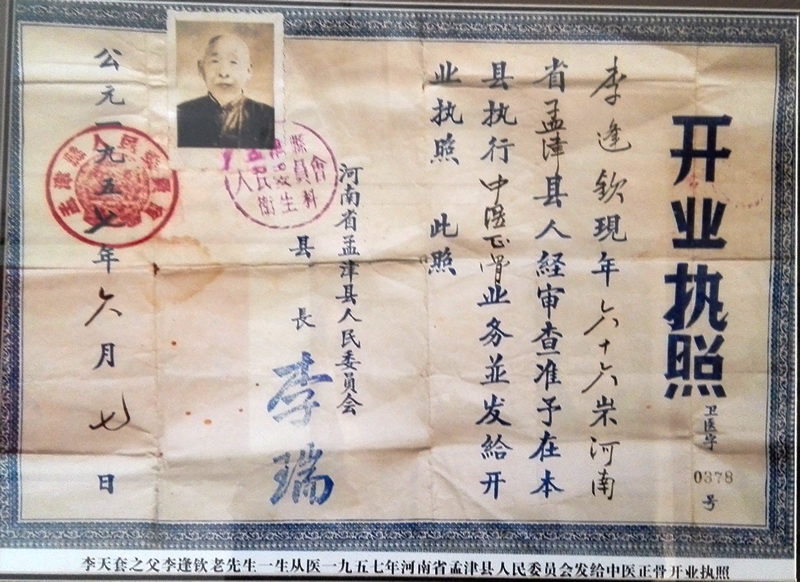 开业执照
卫医字
0378号
李逢钦现年六十六岁河南
省孟津县人经审查准予在本
县执行中医正骨业务並发给开
业执照 此照
河南省孟津县人民委员会
县長 李瑞
公元一九五七年六月 日
李天套之父李逢钦老先生一生从医一九五七年河南省孟津县人民委员会发给中医正骨开业执照